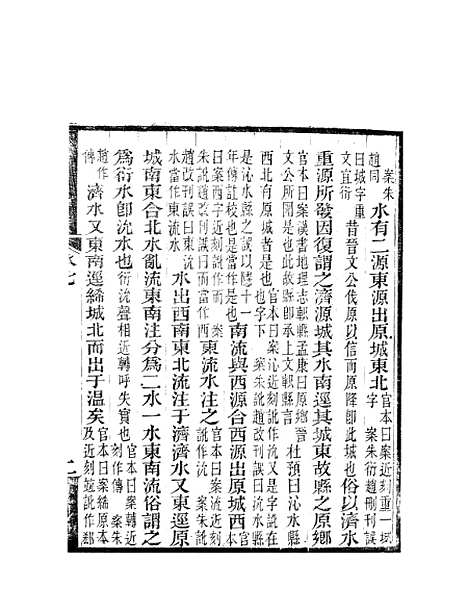 案朱趙同水有二源東源出原城東北官本曰案近刻重一城字 案朱衍趙刪刊誤
曰城字重文宜衍昔晉文公伐原以信而原降卽此城也俗以濟水
重源所發因復謂之濟源城其水南逕其城東故縣之原鄉
官本曰案漢書地理志軹縣孟康曰原鄉晉文公所圍是也此故縣卽承上文軹縣言杜預曰沁水
西北有原城者是也官本曰案沁近刻訛作沇又是字訛在也字下 案朱訛趙改刊誤曰沇水縣
是沁水縣之訛以隱十一年傳註校也是當作是也南流與西源合西源出原城西官本
曰案西近刻訛作而 案朱訛趙改刊誤曰而當作西東流水注之官本曰案流近刻訛作沇 案朱訛
趙改刊誤曰沇水當作東流水水出西南東北流注于濟濟水又東逕原
城南東合北水亂流東南注分爲二水一水東南流俗謂之
爲衍水卽沇水也衍沇聲相近轉呼失實也官本曰案轉近刻作傳 案朱
趙作傳濟水又東南逕絺城北而出于溫矣官本曰案絺原本及近刻竝訛作郄